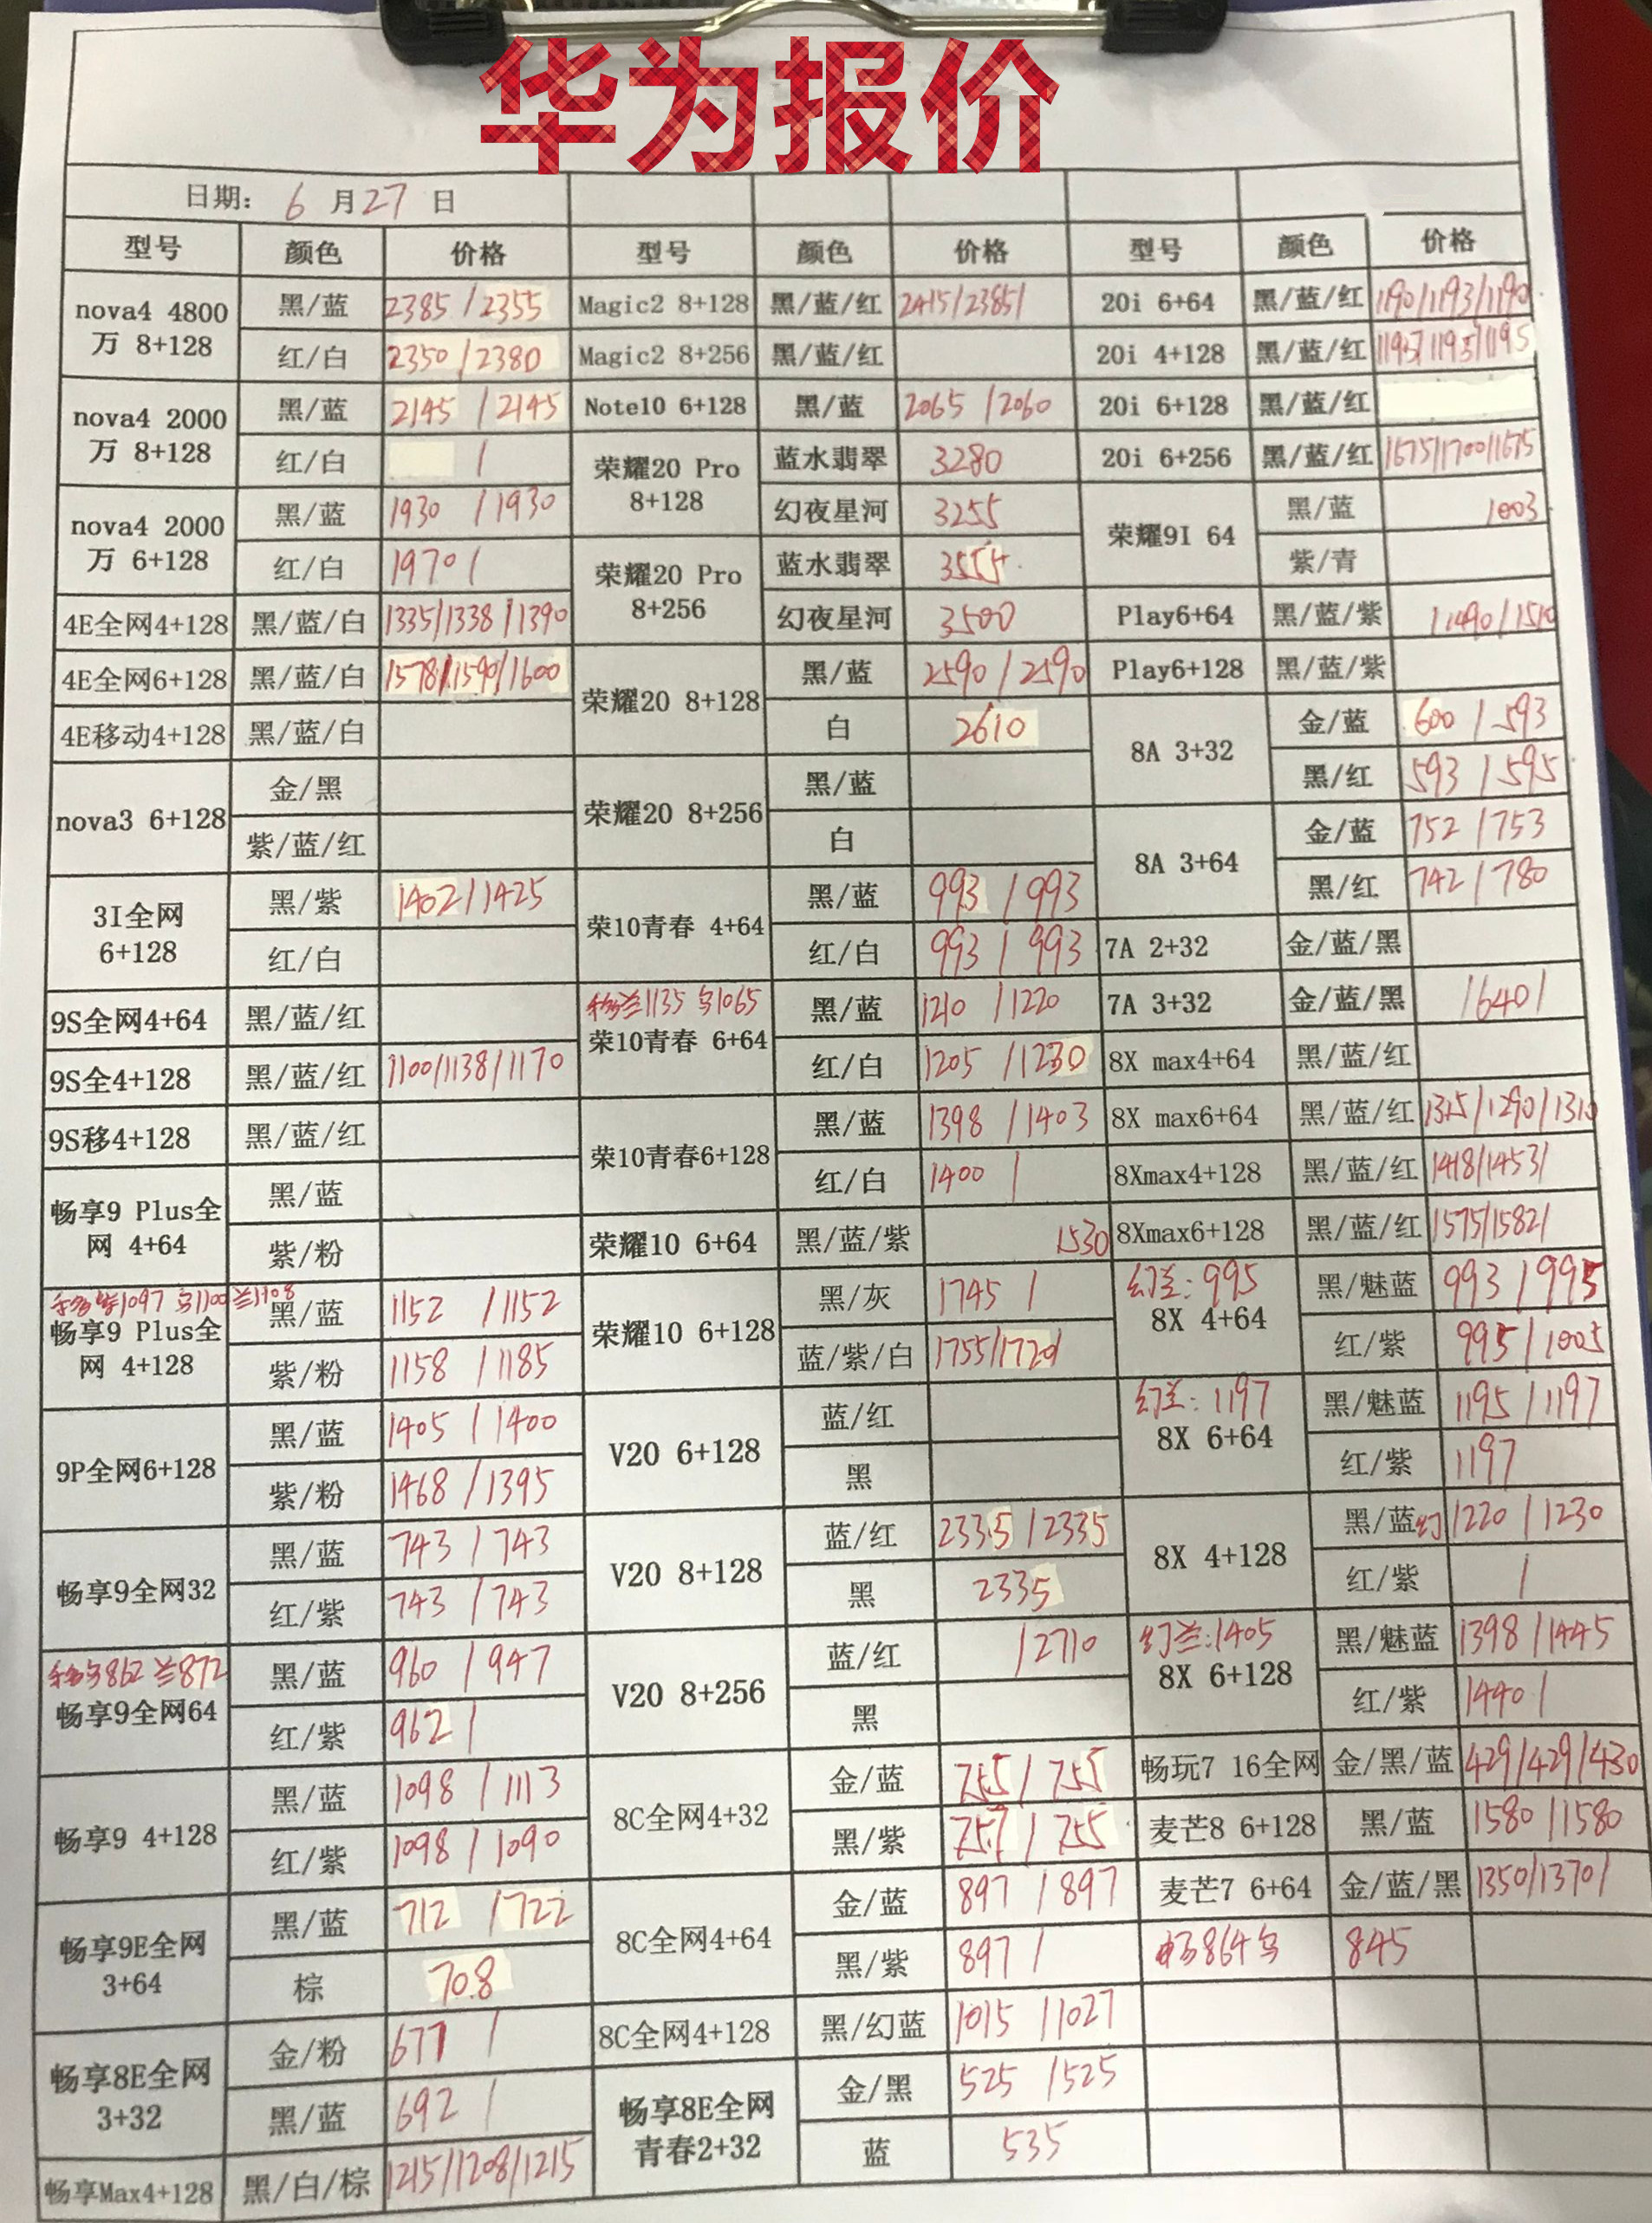 华为报价
日期： 6 月 27 日
型号 颜色 价格 型号 颜色 价格 型号 颜色 价格
nova4 4800万 8+128 黑/蓝 2385/2355
红/白 2350/2380
nova4 2000万 8+128 黑/蓝 2145/2145
红/白 /
nova4 2000万 6+128 黑/蓝 1930/1930
红/白 1970/
4E全网4+128 黑/蓝/白 1335/1338/1390
4E全网6+128 黑/蓝/白 1578/1590/1600
4E移动4+128 黑/蓝/白
nova3 6+128 金/黑
紫/蓝/红
3I全网 6+128 黑/紫 1402/1425
红/白
9S全网4+64 黑/蓝/红
9S全4+128 黑/蓝/红 1100/1138/1170
9S移4+128 黑/蓝/红
畅享9 Plus全网 4+64 黑/蓝
紫/粉
移紫1097 乌1100 兰1108
畅享9 Plus全网 4+128 黑/蓝 1152/1152
紫/粉 1158/1185
9P全网6+128 黑/蓝 1405/1400
紫/粉 1468/1395
畅享9全网32 黑/蓝 743/743
红/紫 743/743
移乌862 兰872
畅享9全网64 黑/蓝 960/947
红/紫 962/
畅享9 4+128 黑/蓝 1098/1113
红/紫 1098/1090
畅享9E全网 3+64 黑/蓝 712/722
棕 708
畅享8E全网 3+32 金/粉 677/
黑/蓝 692/
畅享Max4+128 黑/白/棕 1215/1208/1215
Magic2 8+128 黑/蓝/红 2415/2385/
Magic2 8+256 黑/蓝/红
Note10 6+128 黑/蓝 2065/2060
荣耀20 Pro 8+128 蓝水翡翠 3280
幻夜星河 3255
荣耀20 Pro 8+256 蓝水翡翠
幻夜星河 3500
荣耀20 8+128 黑/蓝 2590/2590
白 2610
荣耀20 8+256 黑/蓝
白
荣10青春 4+64 黑/蓝 993/993
红/白 993/993
移兰1135 乌1065
荣10青春 6+64 黑/蓝 1210/1220
红/白 1205/1230
荣10青春6+128 黑/蓝 1398/1403
红/白 1400/
荣耀10 6+64 黑/蓝/紫 1530
荣耀10 6+128 黑/灰 1745/
蓝/紫/白 1755/1720/
V20 6+128 蓝/红
黑
V20 8+128 蓝/红 2335/2335
黑 2335
V20 8+256 蓝/红 /2710
黑
8C全网4+32 金/蓝 755/755
黑/紫 757/755
8C全网4+64 金/蓝 897/897
黑/紫 897/
8C全网4+128 黑/幻蓝 1015/1027
畅享8E全网青春2+32 金/黑 525/525
蓝 535
20i 6+64 黑/蓝/红 1190/1193/1190
20i 4+128 黑/蓝/红 1195/1195/1195
20i 6+128 黑/蓝/红
20i 6+256 黑/蓝/红 1675/1700/1675
荣耀9I 64 黑/蓝 1003
紫/青
Play6+64 黑/蓝/紫 /1490/1510
Play6+128 黑/蓝/紫
8A 3+32 金/蓝 600/593
黑/红 593/595
8A 3+64 金/蓝 752/753
黑/红 742/780
7A 2+32 金/蓝/黑
7A 3+32 金/蓝/黑 /640/
8X max4+64 黑/蓝/红
8X max6+64 黑/蓝/红 1315/1290/1310
8Xmax4+128 黑/蓝/红 1418/1453/
8Xmax6+128 黑/蓝/红 1575/1582/
幻兰：995
8X 4+64 黑/魅蓝 993/995
红/紫 995/1005
幻兰：1197
8X 6+64 黑/魅蓝 1195/1197
红/紫 1197
8X 4+128 黑/蓝幻 1220/1230
红/紫 /
幻兰：1405
8X 6+128 黑/魅蓝 1398/1445
红/紫 1440/
畅玩7 16全网 金/黑/蓝 429/429/430
麦芒8 6+128 黑/蓝 1580/1580
麦芒7 6+64 金/蓝/黑 1350/1370/
864 乌 845